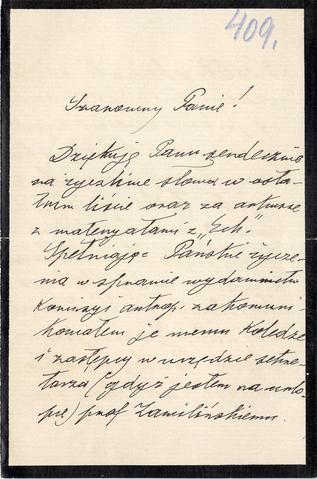 409.
Szanowny Panie!
Dziękuję Panu serdecznie
na życzliwe słowa w osta-
tnim liście oraz za arkusze
z materyałami z „Ech".
Spełniając Pańskie życze-
nia w sprawie wydawnictw
Komisyi antrop. zakomuni-
kowałem je memu Koledze
i zastępcy w urzędzie sekre-
tarza (gdyż jestem na urlo-
pie) prof Zawilińskiemu.